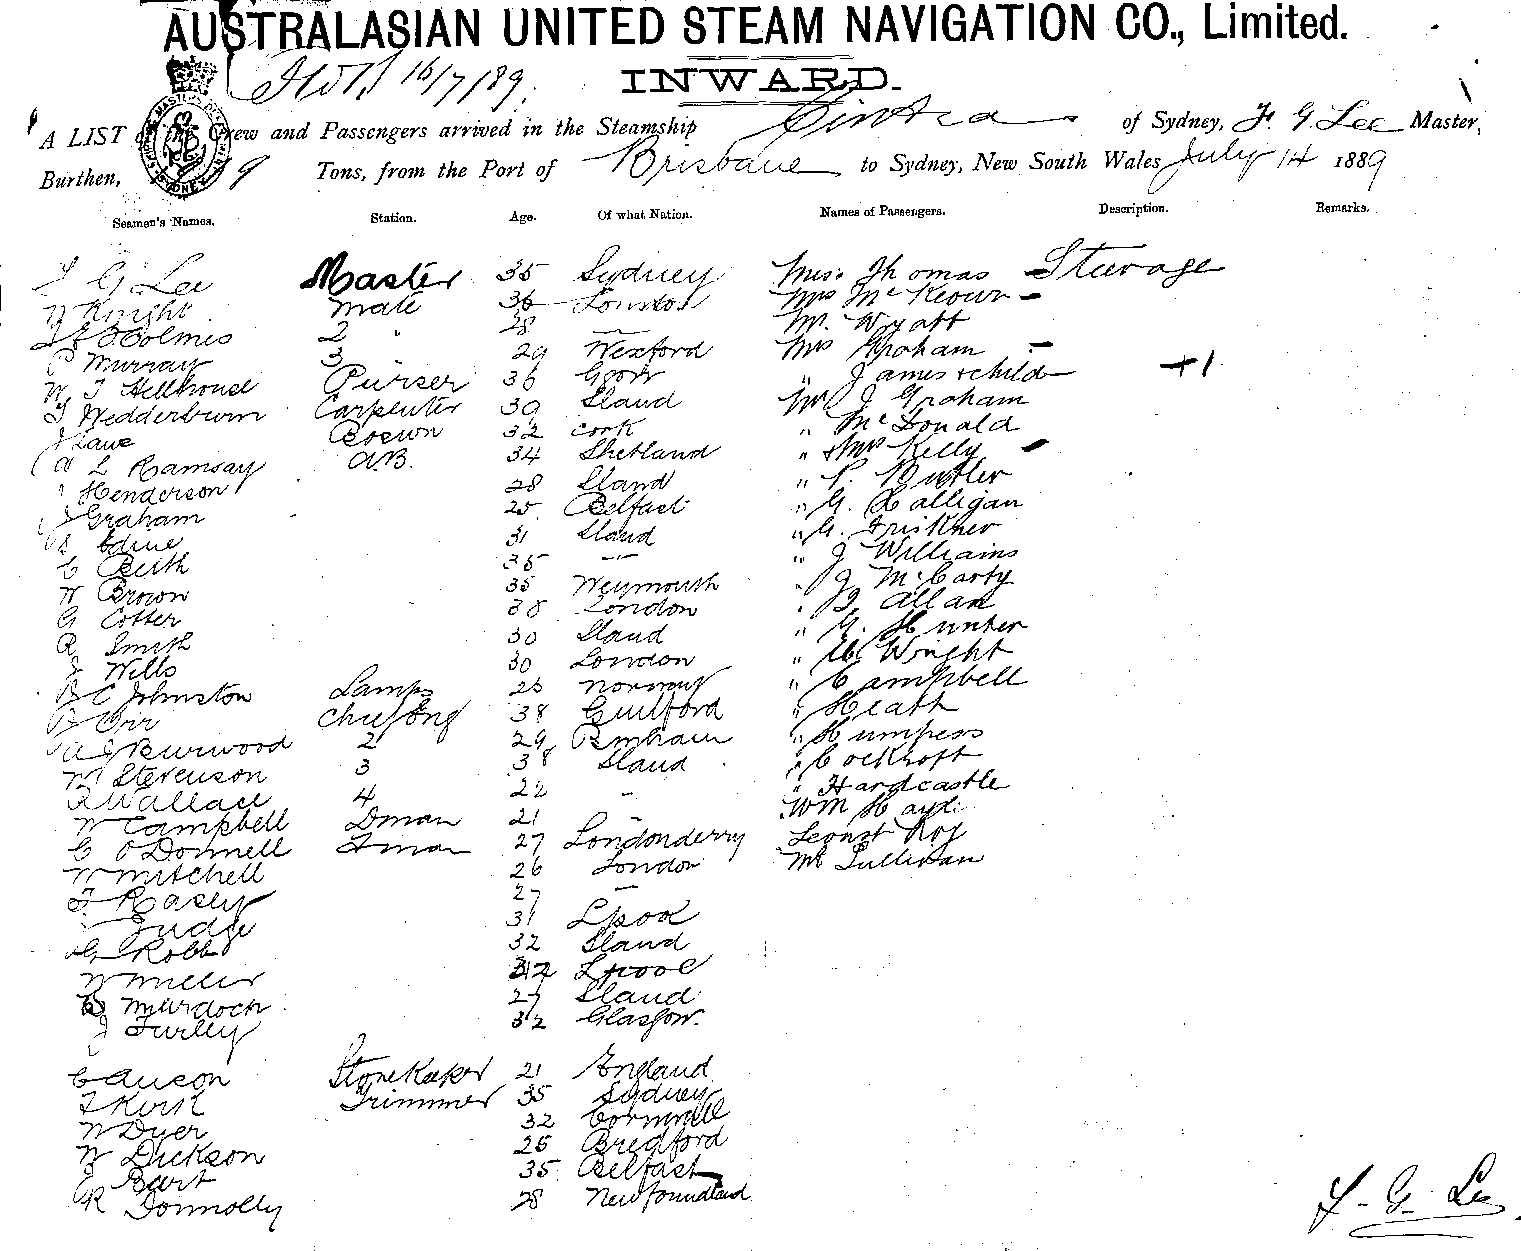 AUSTRALASIAN UNITED STEAM NAVIGATION CO., Limited.
16/7/89. INWARD.
A LIST of the Crew and Passengers arrived in the Steamship Cintra of Sydney, F. G. Lee Master,
Burthen, 19 Tons, from the Port of Brisbane to Sydney, New South Wales July 14 1889
Seamen's Names. Station. Age. Of what Nation. Names of Passengers. Description. Remarks.
F G Lee Master 35 Sydney Mrs. Thomas Steerage
Knight Mate 36 London Mrs McKeown -
Holmes 2 " 28 Mr. Wyatt
P Murray 3 29 Wexford Mrs Graham -
W. J Hellhouse Purser 36 " James & child - +1
Wedderburn Carpenter 39 Sland Mr J Graham
J Lane Bosun 32 Cork " McDonald
L Ramsay A.B. 34 Shetland " Mrs Kelly -
Henderson 28 Sland " P. Butler
J Graham 25 Belfast " G. Halligan
Edine 31 Sland "
C Beith 35 - " J Williams
W Brown 35 Weymouth " J McCarty
G Cotter 38 London " J Allan
R Smith 30 Sland " G. Hunter
J Wills 30 London " Wright
C Johnston Lamps 25 Norway " Campbell
B Orr Chief Eng 38 Guilford " Heath
A J Burwood 2 29 " Humpess
W Stevenson 3 38 Sland " Cockroft
A Wallace 4 22 - " Hardcastle
W Campbell Dman 21 - Wm
C O'Donnell Fman 27 Londonderry Roy
W Mitchell 26 London Mr Sullivan
T Kasey 27 -
Judge 31 Lpool
G Robb 32 Sland
W Miller 32 Lpool
Murdoch 27 Sland
J Turley 32 Glasgow.
C Anson Storekeeper 21 England
J Kirk Trimmer 35 Sydney
W Dyer 32 Cornwall
W Dickson 25 Bredford
Bart 35 Belfast
R Donnolly 28 Newfoundland
F. G. Lee